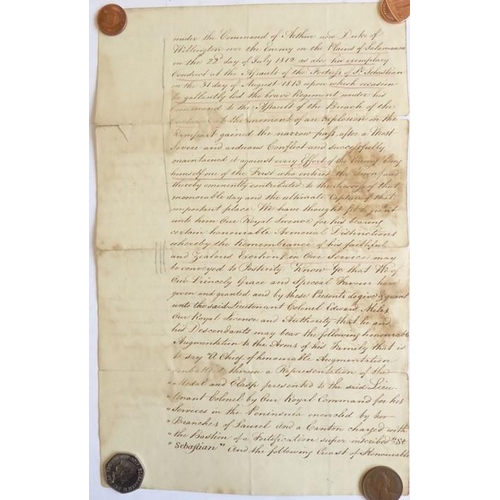 under the Command of Arthur now Duke of
Wellington over the Enemy in the Plains of Salamanca
on the 22d day of July 1812 as also his exemplary
Conduct at the Assault of the Fortress of St. Sebastian
on the 31 day of August 1813 upon which occasion
he gallantly led the above Regiment under his
Command to the Assault of the Breach of the
at the moment of an Explosion on the
Rampart gained the narrow pass after a Most
Severe and arduous Conflict and successfully
maintained it against every Effort of the Enemy being
himself one of the First who entered the Town and
thereby eminently contributed to the success of that
memorable day and the ultimate Capture of that
important place We have thought fit to
unto him Our Royal Licence for his bearing
certain honourable Armorial Distinctions
whereby the Remembrance of his faithful
and Zealous Exertions in Our Service may
be conveyed to Posterity Know Ye that We of
Our Princely Grace and Special Favour have
given and granted and by these Presents do give & grant
unto the said Lieutenant Colonel Edward Miles
Our Royal Licence and Authority that he and
his Descendants may bear the following honourable
Augmentation to the Arms of his Family that is
to say "A Chief of honourable Augmentation
"thereon a Representation of the
"Medal and Clasp presented to the said Lieu-
"tenant Colonel by Our Royal Command for his
"Services in the Peninsula encircled by two
"Branches of Laurel and a Canton charged with
"the Bastion of a Fortification super inscribed "St.
"Sebastian" And the following Crest of Honourable